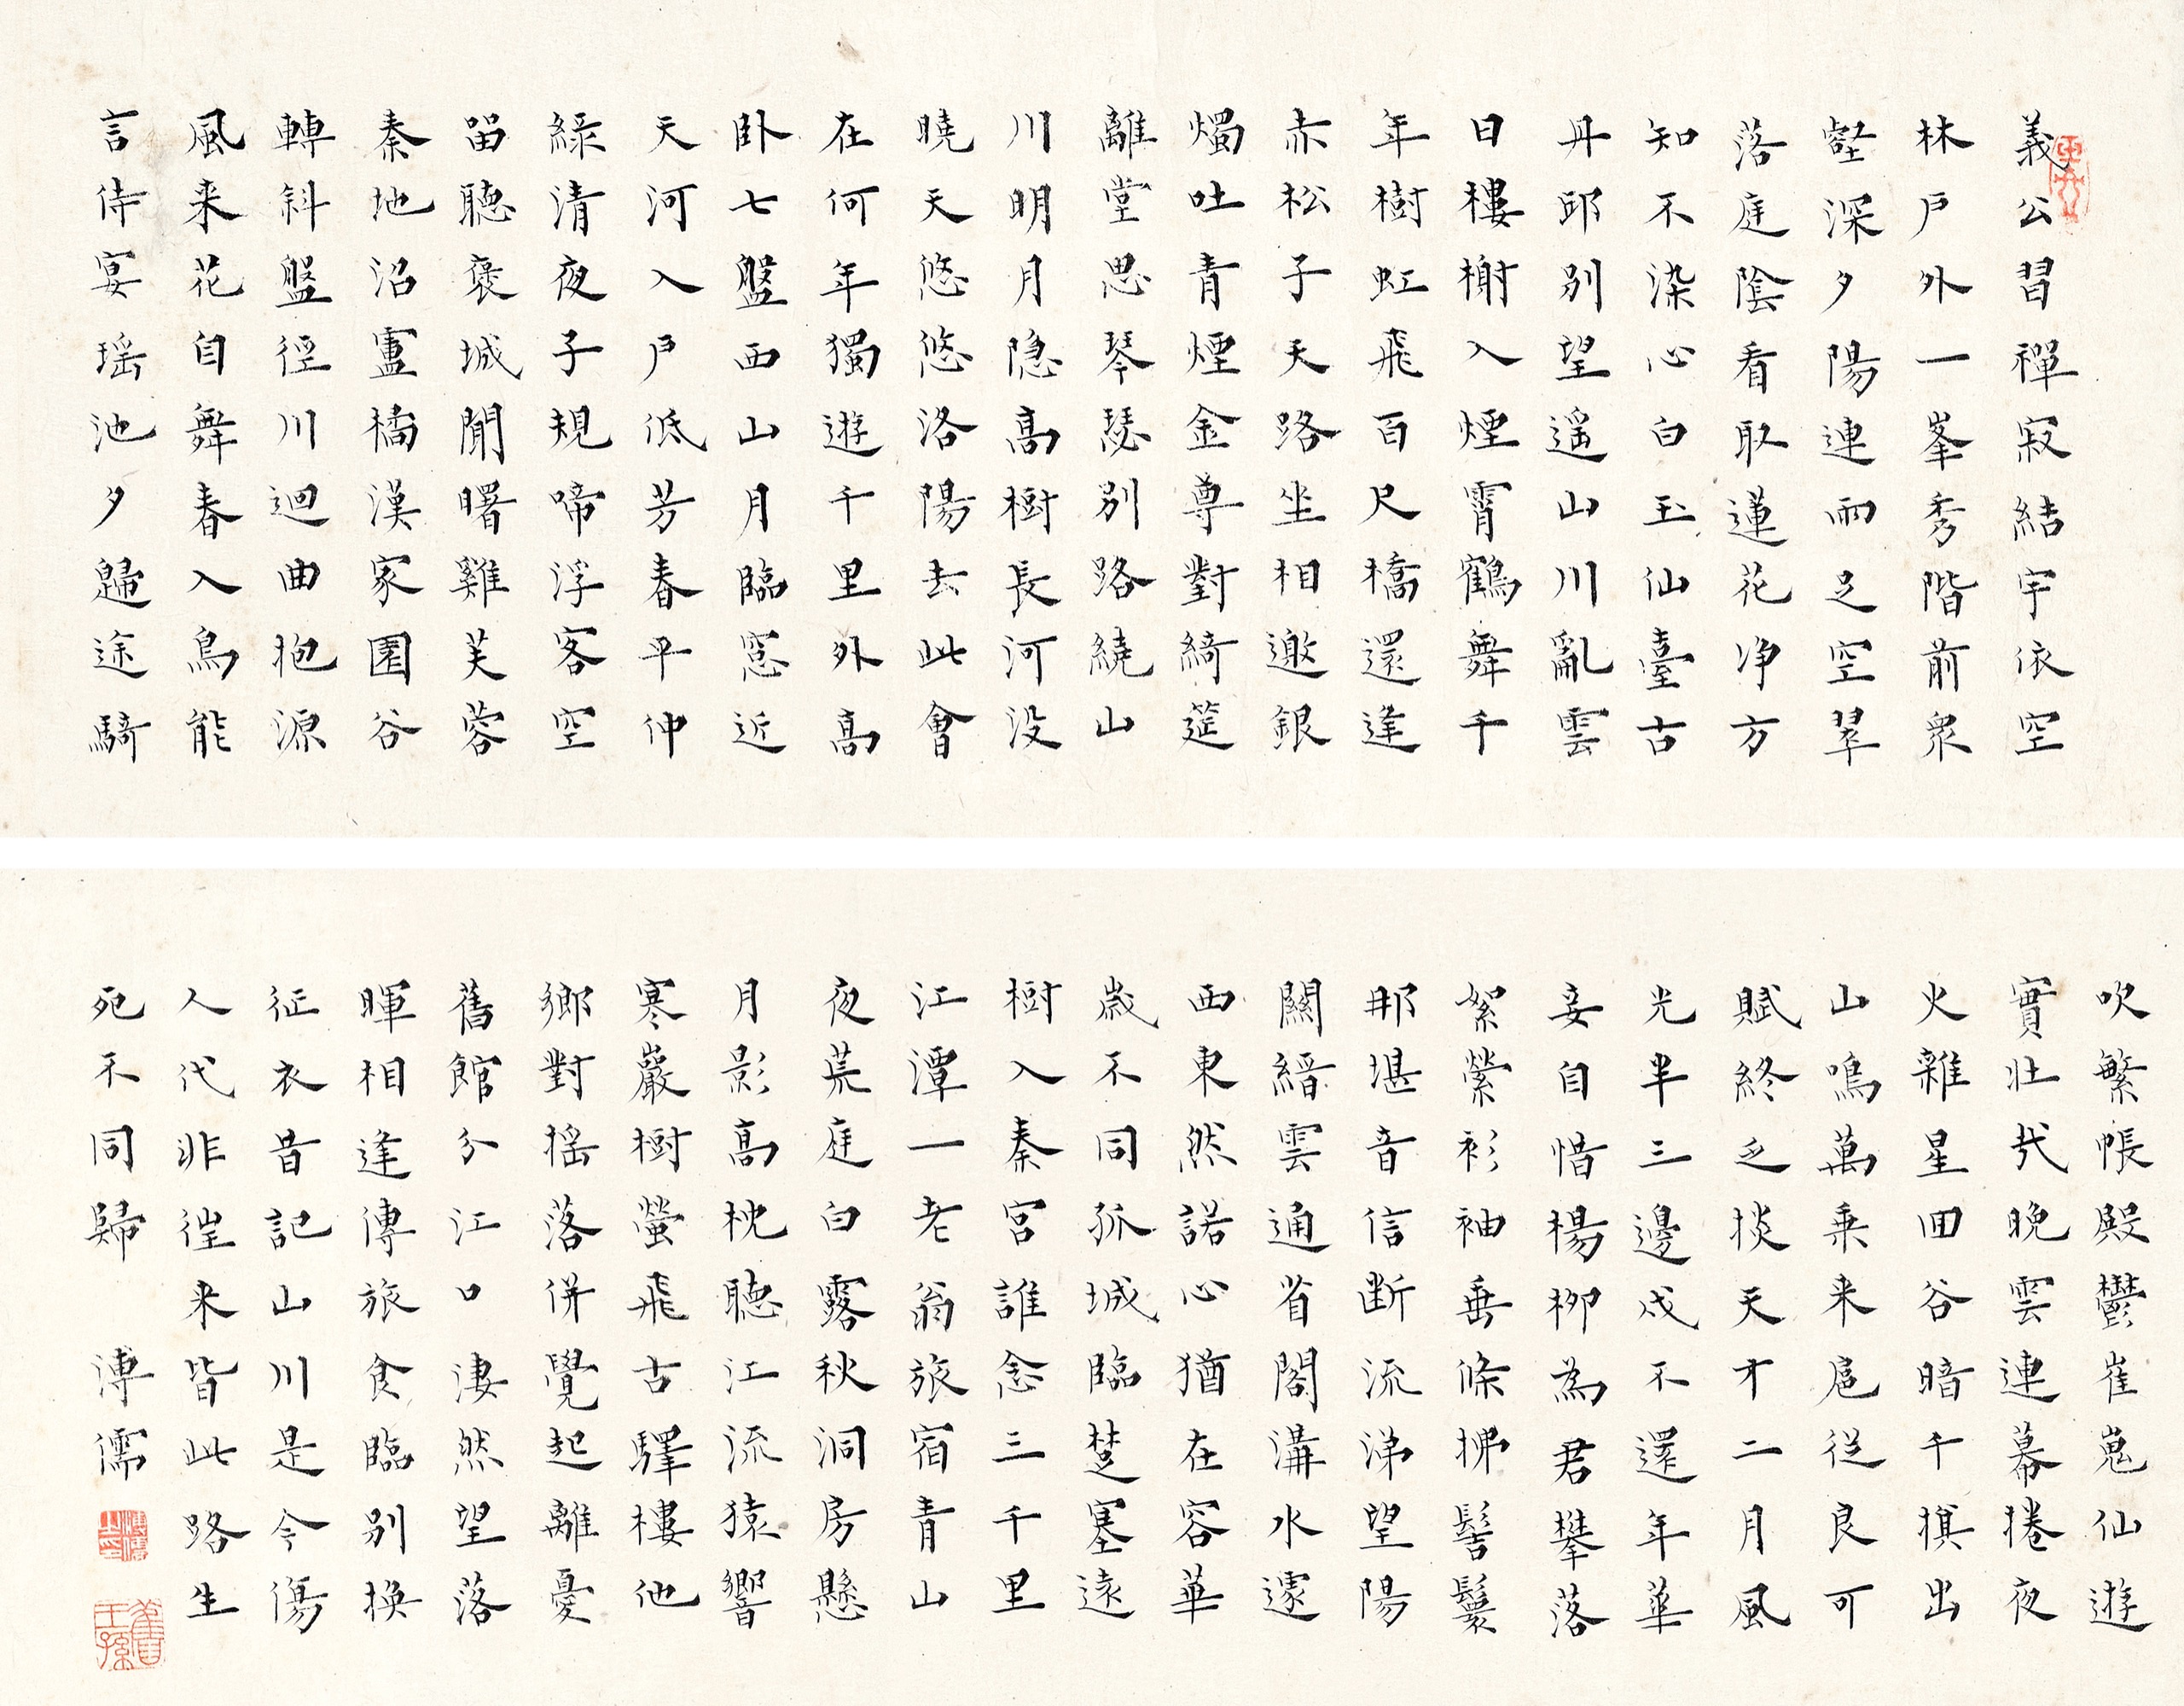 義公習禪寂結宇依空
林戶外一峯秀階前衆
壑深夕陽連雨足空翠
落庭陰看取蓮花净方
知不染心白玉仙臺古
丹邱別望遥山川亂雲
日樓榭入煙霄鶴舞千
年樹虹飛百尺橋還逢
赤松子天路坐相邀銀
燭吐青煙金尊對綺筵
離堂思琴瑟別路繞山
川明月隐高樹長河没
曉天悠悠洛陽去此會
在何年獨遊千里外高
卧七盤西山月臨窓近
天河入戶低芳春平仲
綠清夜子規啼浮客空
留聽褒城聞曙雞芙蓉
秦地沼盧橘漢家園谷
轉斜盤徑川迴曲抱源
風来花自舞春入鳥能
言侍宴瑶池夕歸途騎
吹繁帳殿鬱崔嵬仙遊
實壯哉晚雲連幕捲夜
火雜星回谷暗千旗出
山鳴萬乗来扈従良可
賦終乏掞天才二月風
光半三邊戍不還年華
妾自惜楊柳為君攀落
絮縈衫袖垂條拂髻鬟
那堪音信断流涕望陽
關縉雲通省閣溝水遽
西東然諾心猶在容華
歲不同孤城臨楚塞遠
樹入秦宮誰念三千里
江潭一老翁旅宿青山
夜荒庭白露秋洞房懸
月影高枕聽江流猿響
寒巖樹螢飛古驛樓他
鄉對揺落併覺起離憂
舊館分江口凄然望落
暉相逢傳旅食臨別換
征衣昔記山川是今傷
人代非徃来皆此路生
死不同歸 溥儒